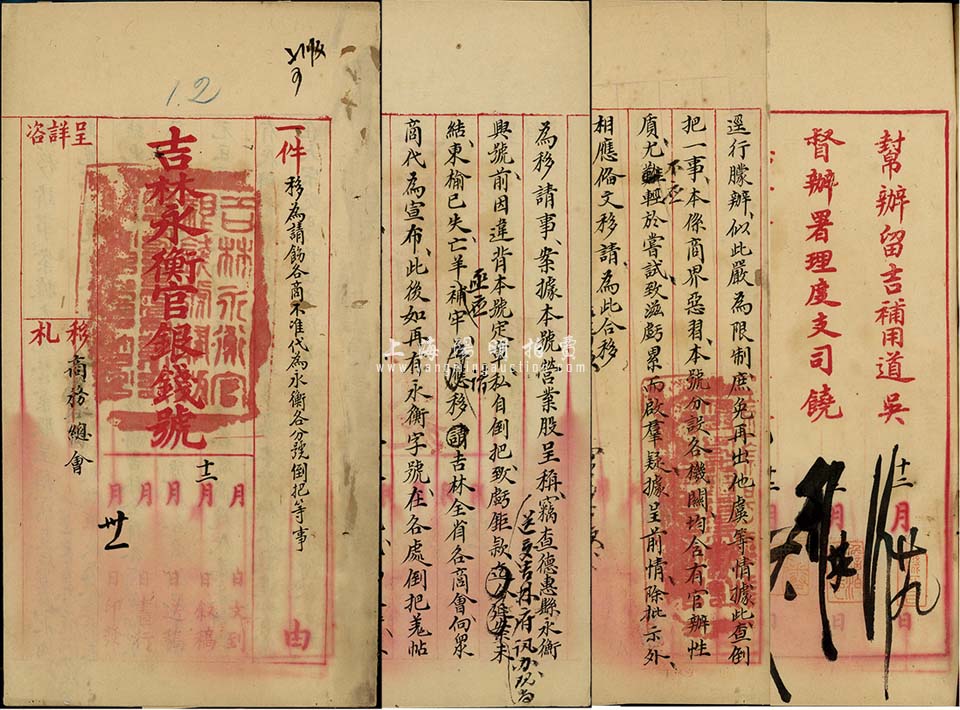 1.2
一件
移為請飭各商不准代為永衡各分號倒把等事
由
吉林永衡官銀錢號
呈詳咨
移札
商務總會
十二月
月
月
月
月
卅一
日文到
日叙稿
日送稿
日印發
為移請事、案據本號營業股呈稱、竊查德惠縣永衡
興號、前因違背本號定章、私自倒把、致虧鉅款、
送交吉林府訊办、現尚
未
結、東榆已失、亡羊補牢、
亟应
移
請
吉林全省各商會向眾
商代為宣布、此後如再有永衡字號、在各處倒把、羌帖
逕行朦辦、似此嚴為限制、庶免再出他虞等情、據此、查倒
把一事、本係商界惡習、本號分設各機關、均含有官辦性
質、尤
不应
輕於嘗試、致滋虧累、而啟羣疑、據呈前情、除批示外
相應俻文移請、為此合移
幫辦留吉補用道吳
督辦署理度支司饒
十二月廿九日
上海陽明拍賣
www.yangmingauction.com